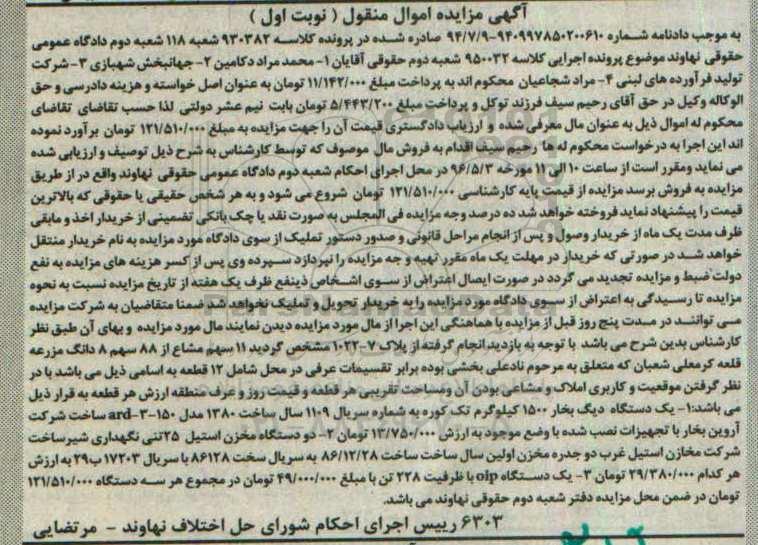 آگهی مزایده اموال منقول ( نوبت اول )
به موجب دادنامه شماره ۹۴۰۹۹۷۸۵۰۲۰۰۶۱۰-۹۴/۷/۹ صادره شده در پرونده کلاسه ۹۳۰۳۸۲ شعبه ۱۱۸ شعبه دوم دادگاه عمومی
حقوقی نهاوند موضوع پرونده اجرایی کلاسه ۹۵۰۰۳۲ شعبه دوم حقوقی آقایان ۱- محمد مراد دکامین ۲- جهانبخش شهبازی ۳- شرکت
تولید فرآورده های لبنی ۴- مراد شجاعیان محکوم اند به پرداخت مبلغ ۱۱/۱۴۲/۰۰۰ تومان به عنوان اصل خواسته و هزینه دادرسی و حق
الوکاله وکیل در حق آقای رحیم سیف فرزند توکل و پرداخت مبلغ ۵/۴۴۳/۲۰۰ تومان بابت نیم عشر دولتی لذا حسب تقاضای تقاضای
محکوم له اموال ذیل به عنوان مال معرفی شده و ارزیاب دادگستری قیمت آن را جهت مزایده به مبلغ ۱۲۱/۵۱۰/۰۰۰ تومان برآورد نموده
اند این اجرا به درخواست محکوم له ها رحیم سیف اقدام به فروش مال موصوف که توسط کارشناس به شرح ذیل توصیف و ارزیابی شده
می نماید ومقرر است از ساعت ۱۰ الی ۱۱ مورخه ۹۶/۵/۳ در محل اجرای احکام شعبه دوم دادگاه عمومی حقوقی نهاوند واقع در از طریق
مزایده به فروش برسد مزایده از قیمت پایه کارشناسی ۱۲۱/۵۱۰/۰۰۰ تومان شروع می شود و به هر شخص حقیقی یا حقوقی که بالاترین
قیمت را پیشنهاد نماید فروخته خواهد شد ده درصد وجه مزایده فی المجلس به صورت نقد یا چک بانکی تضمینی از خریدار اخذ و مابقی
ظرف مدت یک ماه از خریدار وصول و پس از انجام مراحل قانونی و صدور دستور تملیک از سوی دادگاه مورد مزایده به نام خریدار منتقل
خواهد شد در صورتی که خریدار در مهلت یک ماه مقرر تهیه و جه مزایده را نپردازد سپرده وی پس از کسر هزینه های مزایده به نفع
دولت ضبط و مزایده تجدید می گردد در صورت ایصال اعتراض از سوی اشخاص ذینفع ظرف یک هفته از تاریخ مزایده نسبت به نحوه
مزایده تا رسیدگی به اعتراض از سوی دادگاه مورد مزایده را به خریدار تحویل و تملیک نخواهد شد ضمنا متقاضیان به شرکت مزایده
می توانند در مدت پنج روز قبل از مزایده با هماهنگی این اجرا از مال مورد مزایده دیدن نمایند مال مورد مزایده و بهای آن طبق نظر
کارشناس بدین شرح می باشد با توجه به بازدید انجام گرفته از پلاک ۷-۱۰۲۲ مشخص گردید ۱۱ سهم مشاع از ۸۸ سهم ۸ دانگ مزرعه
قلعه کرمعلی شعبان که متعلق به مرحوم نادعلی بخشی بوده برابر تقسیمات عرفی در محل شامل ۱۲ قطعه به اسامی ذیل می باشد با در
نظر گرفتن موقعیت و کاربری املاک و مشاعی بودن آن ومساحت تقریبی هر قطعه و قیمت روز و عرف منطقه ارزش هر قطعه به قرار ذیل
می باشد:۱- یک دستگاه دیگ بخار ۱۵۰۰ کیلوگرم تک کوره به شماره سریال ۱۱۰۹ سال ساخت ۱۳۸۰ مدل ard-۳-۱۵۰ ساخت شرکت
آروین بخار با تجهیزات نصب شده با وضع موجود به ارزش ۱۳/۷۵۰/۰۰۰ تومان ۲- دو دستگاه مخزن استیل ۲۵تنی نگهداری شیرساخت
شرکت مخازن استیل غرب دو جدره مخزن اولین سال ساخت ساخت ۸۶/۱۲/۲۸ به سریال سخت ۸۶۱۲۸ با سریال ۱۷۲۰۳ ب۲۹ به ارزش
هر کدام ۲۹/۳۸۰/۰۰۰ تومان ۳- یک دستگاه oip با ظرفیت ۲۲۸ تن با مبلغ ۴۹/۰۰۰/۰۰۰ تومان در مجموع هر سه دستگاه ۱۲۱/۵۱۰/۰۰۰
تومان در ضمن محل مزایده دفتر شعبه دوم حقوقی نهاوند می باشد.
۶۳۰۳ رییس اجرای احکام شورای حل اختلاف نهاوند - مرتضایی